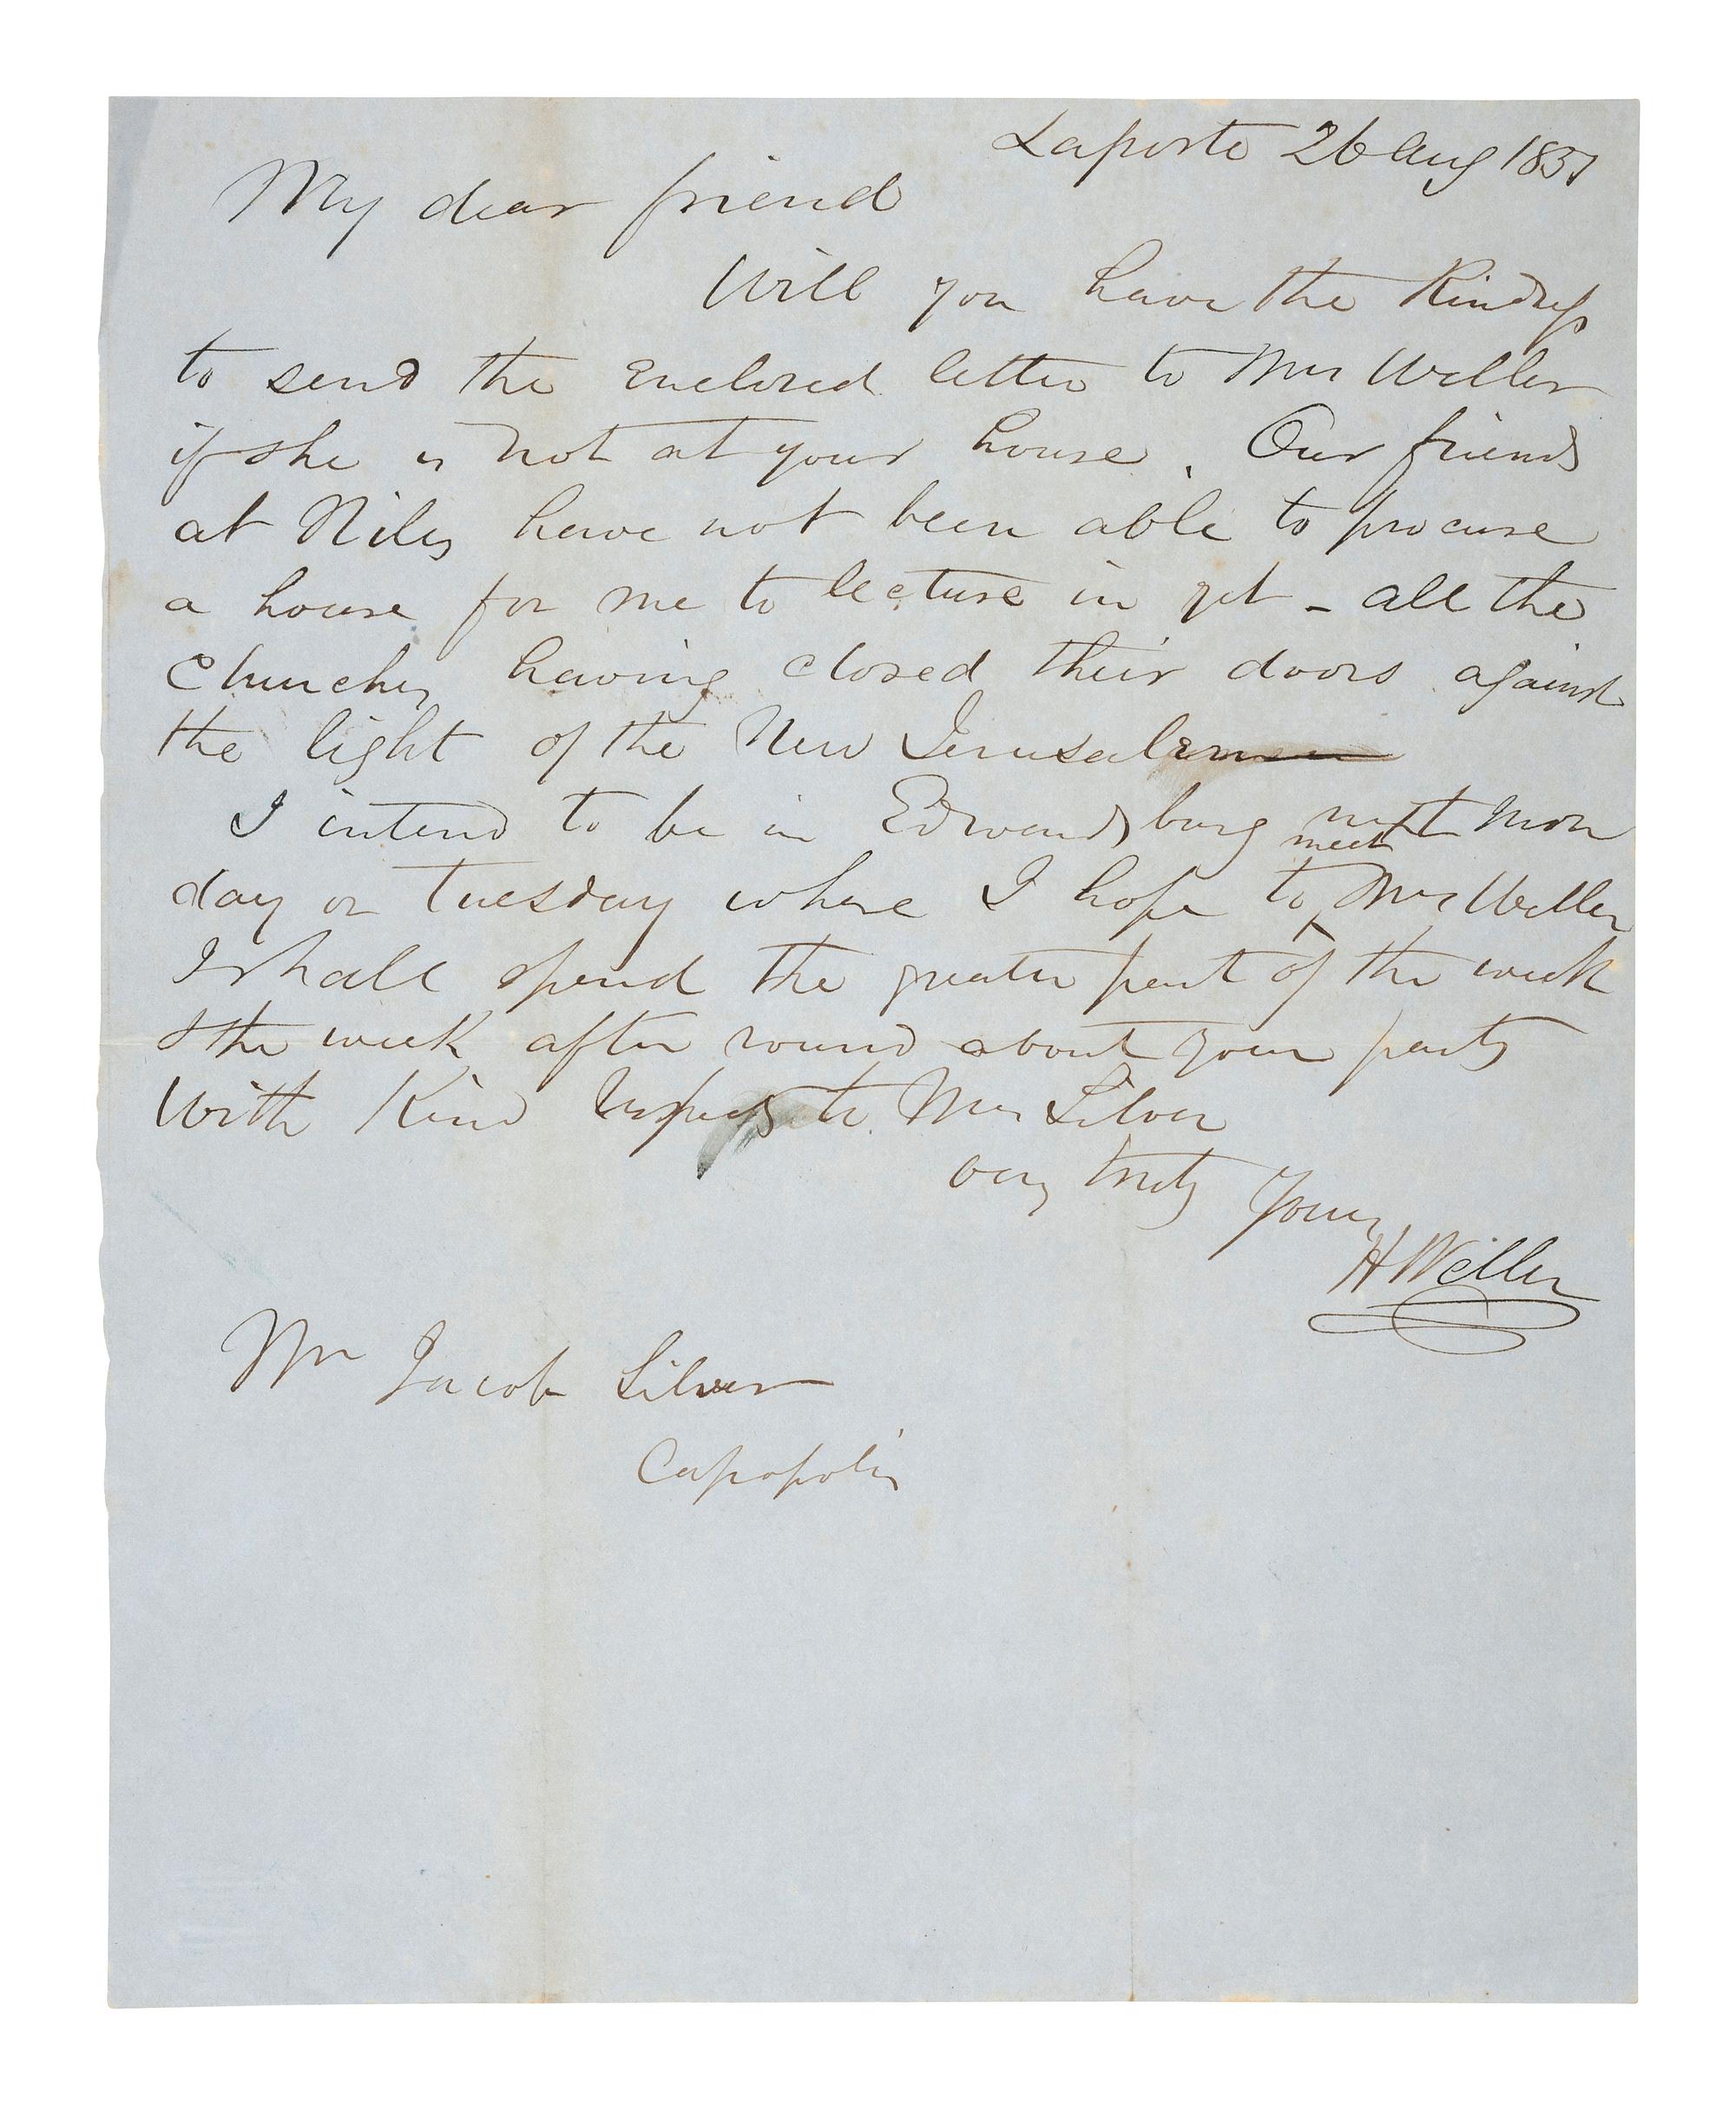 Laporte 26 Aug 1851
My dear friend
Will you have the Kindness
to send the enclosed letter to Mrs Weller
if she is not at your house. Our friends
at Niles have not been able to procure
a house for me to lecture in yet - all the
Churches having closed their doors against
the light of the New Jerusalem
I intend to be in Edwardsburg next Mon
day or Tuesday where I hope to meet Mrs Weller
I shall spend the greater part of the week
& the week after round about your parts
With Kind respects to Mrs Silver
very truly Yours
H Weller
Mr Jacob Silver
Cassopolis